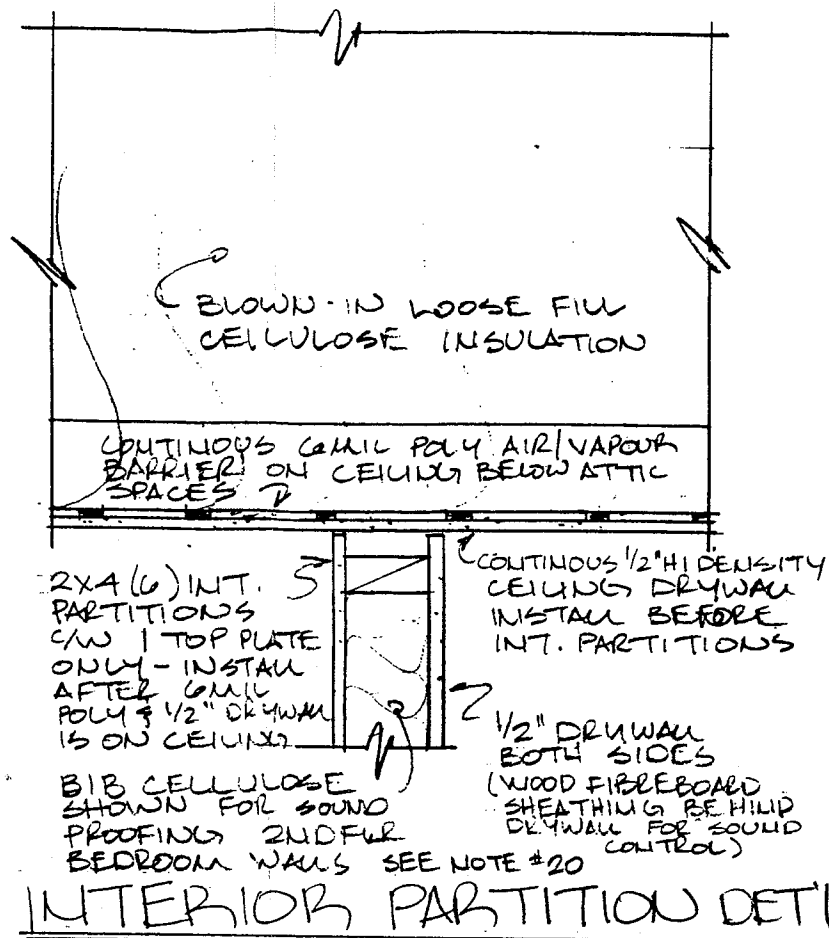 BLOWN-IN LOOSE FILL
CELLULOSE INSULATION
CONTINOUS 6MIL POLY AIR/VAPOUR
BARRIER ON CEILING BELOW ATTIC
SPACES
2X4 (6) INT.
PARTITIONS
C/W 1 TOP PLATE
ONLY - INSTALL
AFTER 6MIL
POLY & 1/2" DRYWALL
IS ON CEILING
CONTINOUS 1/2" HI DENSITY
CEILING DRYWALL
INSTALL BEFORE
INT. PARTITIONS
1/2" DRYWALL
BOTH SIDES
(WOOD FIBREBOARD
SHEATHING BEHIND
DRYWALL FOR SOUND
CONTROL)
BIB CELLULOSE
SHOWN FOR SOUND
PROOFING 2ND FLR
BEDROOM WALLS SEE NOTE #20
INTERIOR PARTITION DET'L